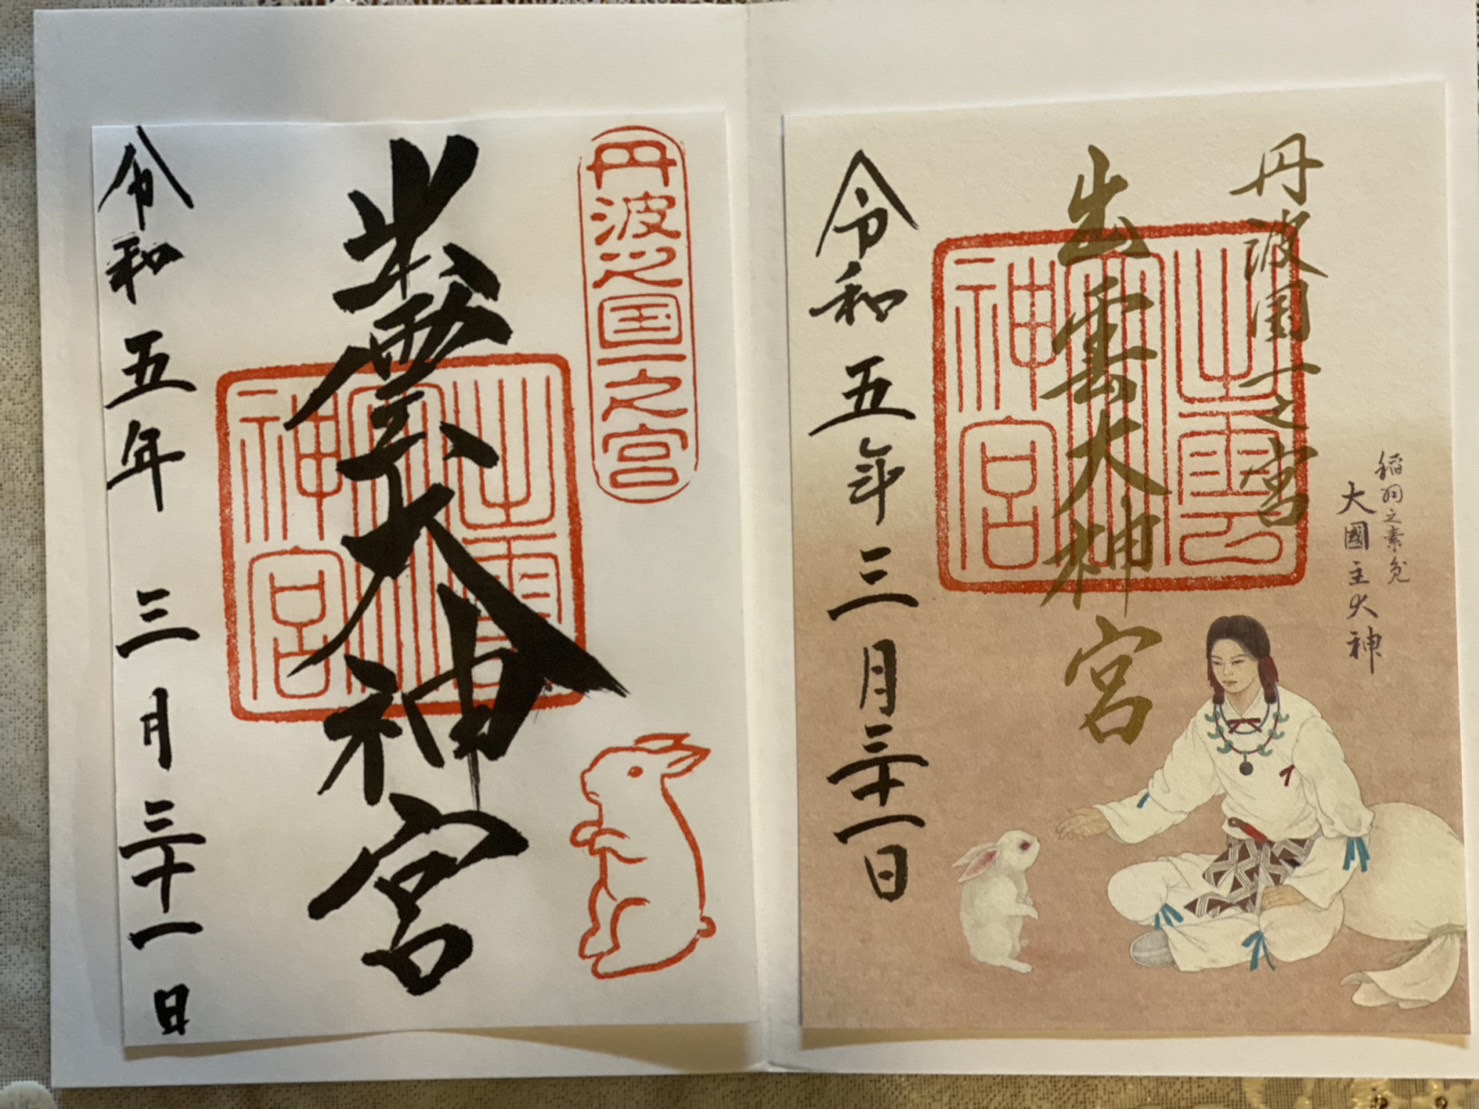 丹波國一之宮
出雲大神宮
出雲大神宮
令和五年三月三十一日
稲羽之素兔
大國主大神
丹波之国一之宮
出雲大神宮
出雲大神宮
令和五年三月三十一日